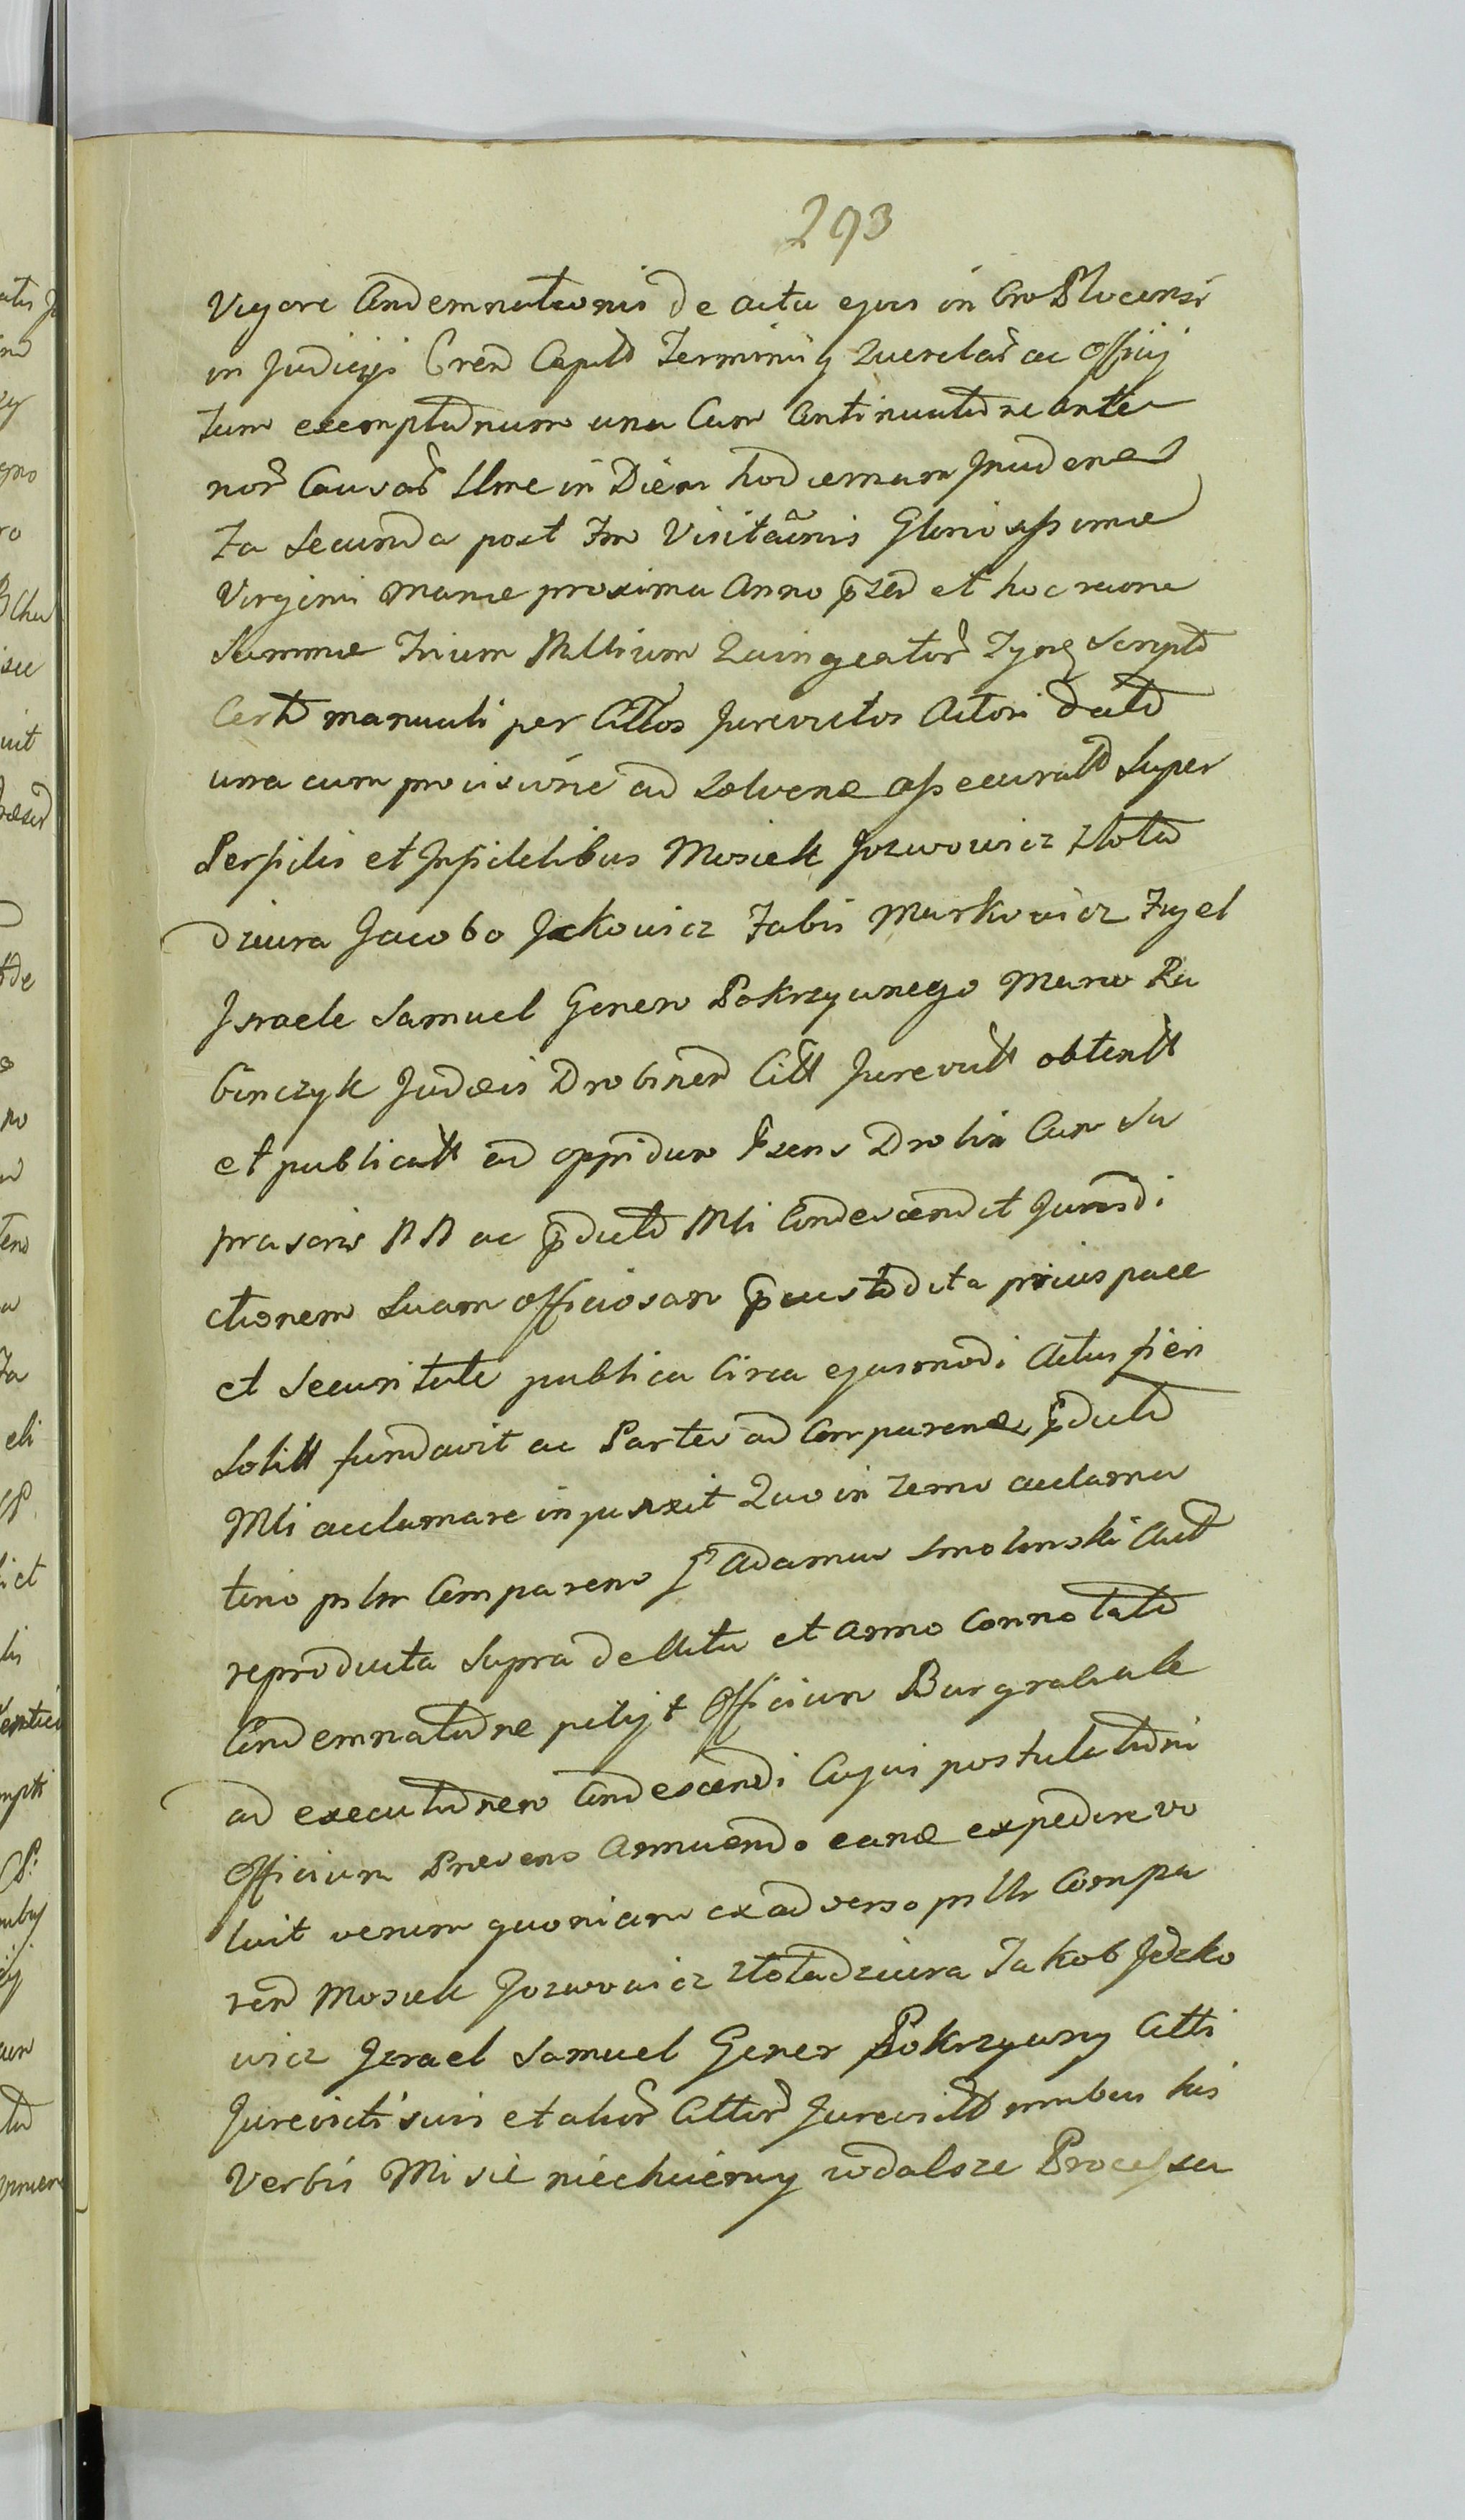 293
Vigore Condemnationis de actu ejus in Cro Plocensi
in Judicijs Cren Capitl Terminis Querelar ac Officij
tum exemptionum una cum Continuatione ante
nor Causar Ilme in Diem hodiernam
Ia Secunda post Fm Visitãonis Gloriosissimæ
Virginis Mariæ proxima Anno et hoc racione
Summæ Trium Millium Quingentor Script
Certo manuali per Cittos Jurevictos Actori dato
una cum provisione ad Solvend assecurato Super
Perfidis et Infidelibus Mosiek Jozwowicz Zlota
dziura Jacobo Jckowicz Tabis Markowicz Fiyel
Israele Samuel Genero Pokrzywnego Marco Ra
binczyk Judæis Drobinen Citt Jurevictt obtentt
et publicatt ad oppidum Psens Drobin Cum Su
prascris NN ac Mli Condescendit Jurisdi
ctionem Suam officiosam custodita prius pace
et Securitate publica Circa ejusmodi Actus fieri
Solitt fundavit ac Partes ad Comparend
Mli acclamare injunxit Quo in termo acclama
tino psltr Comparens G Adamus Smolenski Act
reproducta Supra de Actu et Anno Connotato
Condemnatione petijt Officium Burgrabiale
ad executionem Condescendi Cujus postulationi
Officium Præsens Annuendo eand expedire vo
luit verum quoniam ex adverso psltr Compa
ren Mosiek Jozwowicz Zlotadziura Jakob Jdzko
wicz Izrael Samuel Gener Pokrzywny Citti
Jurevicti suis et alior Cittor Jurevict nnibus his
Verbis Mi sie niechciemy wdalsze Processa